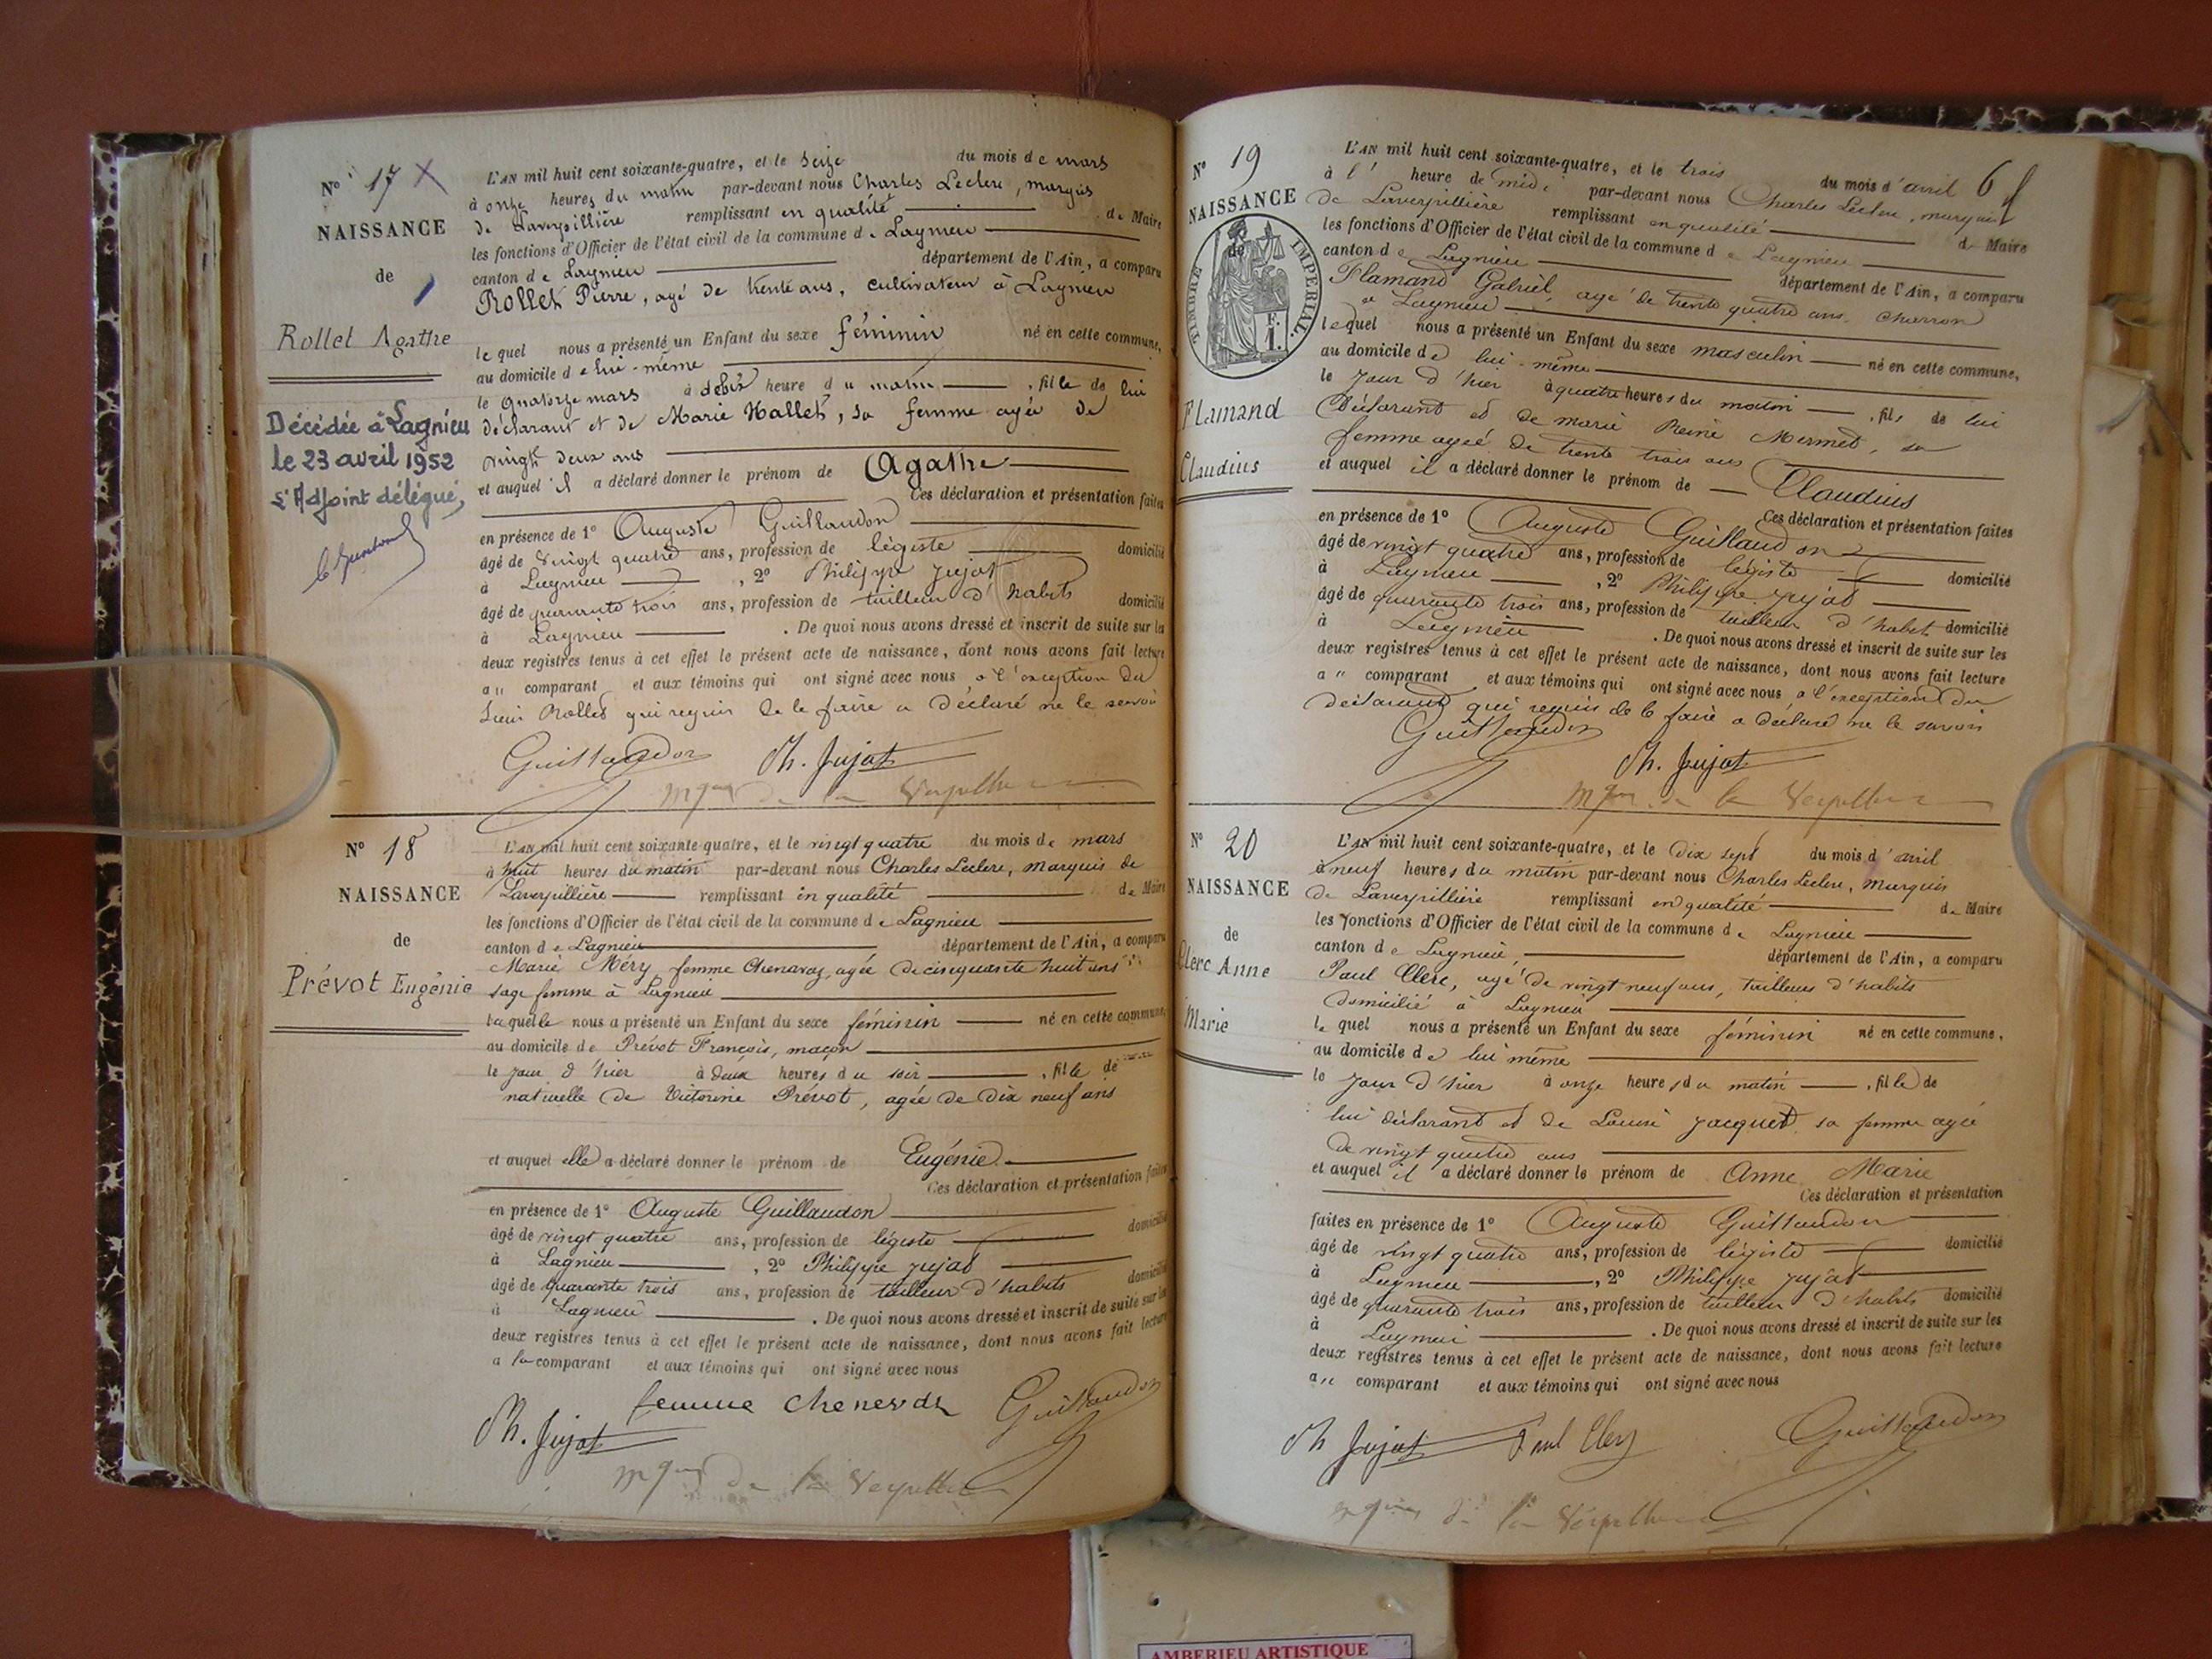 N° 17 X
NAISSANCE
de
Rollet Agathe
Décédée à Lagnieu
le 23 avril 1952
L'Adjoint délégué,
L'AN mil huit cent soixante-quatre, et le seize du mois de mars
à onze heures du matin par-devant nous Charles Leclerc, marquis
de Laverpillière remplissant en qualité de Maire
les fonctions d'Officier de l'état civil de la commune de Lagnieu
canton de Lagnieu département de l'Ain, a comparu
Rollet Pierre, agé de trente ans, cultivateur à Lagnieu
lequel nous a présenté un Enfant du sexe féminin né en cette commune,
au domicile de lui-même
le quatorze mars à heure du matin, fille de lui
déclarant et de Marie Hallet, sa femme agée de
vingt deux ans
et auquel il a déclaré donner le prénom de Agathe
Ces déclaration et présentation faites
en présence de 1° Auguste Guillaudon
âgé de vingt quatre ans, profession de légiste domicilié
à Lagnieu, 2° Philippe Jujat
âgé de quarante trois ans, profession de tailleur d'habits domicilié
à Lagnieu. De quoi nous avons dressé et inscrit de suite sur les
deux registres tenus à cet effet le présent acte de naissance, dont nous avons fait lecture
au comparant et aux témoins qui ont signé avec nous à l'exception du
sieur Rollet qui requis de le faire a déclaré ne le savoir
Guillaudon Ph. Jujat
Mquis de la Verpillière
N° 18
NAISSANCE
de
Prévot Eugénie
L'AN mil huit cent soixante-quatre, et le vingt quatre du mois de mars
à huit heures du matin par-devant nous Charles Leclerc, marquis de
Laverpillière remplissant en qualité de Maire
les fonctions d'Officier de l'état civil de la commune de Lagnieu
canton de Lagnieu département de l'Ain, a comparu
Marie Méry femme Chenavaz, agée de cinquante huit ans
sage femme à Lagnieu
laquelle nous a présenté un Enfant du sexe féminin né en cette commune,
au domicile de Prévot François, maçon
le jour d'hier à deux heures du soir, fille de
naturelle de Victorine Prévot, agée de dix neuf ans
et auquel elle a déclaré donner le prénom de Eugénie
Ces déclaration et présentation faites
en présence de 1° Auguste Guillaudon
âgé de vingt quatre ans, profession de légiste domicilié
à Lagnieu, 2° Philippe Jujat
âgé de quarante trois ans, profession de tailleur d'habits domicilié
à Lagnieu. De quoi nous avons dressé et inscrit de suite sur les
deux registres tenus à cet effet le présent acte de naissance, dont nous avons fait lecture
a la comparant et aux témoins qui ont signé avec nous
femme Guillaudon
Ph. Jujat
Mquis de la Verpillière
6
N° 19
NAISSANCE
de
TIMBRE IMPERIAL.
F.
1.
Flamand
Claudius
L'AN mil huit cent soixante-quatre, et le trois du mois d'avril
à l'heure de midi par-devant nous Charles Leclerc, marquis
de Laverpillière remplissant en qualité de Maire
les fonctions d'Officier de l'état civil de la commune de Lagnieu
canton de Lagnieu département de l'Ain, a comparu
Flamand Gabriel, agé de trente quatre ans, charron
à Lagnieu
lequel nous a présenté un Enfant du sexe masculin né en cette commune,
au domicile de lui-même
le jour d'hier à quatre heures du matin, fils de lui
déclarant et de marie Reine Mermet, sa
femme agée de trente trois ans
et auquel il a déclaré donner le prénom de Claudius
Ces déclaration et présentation faites
en présence de 1° Auguste Guillaudon
âgé de vingt quatre ans, profession de légiste domicilié
à Lagnieu, 2° Philippe Jujat
âgé de quarante trois ans, profession de tailleur d'habit domicilié
à Lagnieu. De quoi nous avons dressé et inscrit de suite sur les
deux registres tenus à cet effet le présent acte de naissance, dont nous avons fait lecture
au comparant et aux témoins qui ont signé avec nous a l'exception du
déclarant qui requis de le faire a déclaré ne le savoir
Guillaudon
Ph. Jujat
Mquis de la Verpillière
N° 20
NAISSANCE
de
Clerc Anne
Marie
L'AN mil huit cent soixante-quatre, et le dix sept du mois d'avril
à neuf heures du matin par-devant nous Charles Leclerc, marquis
de Laverpillière remplissant en qualité de Maire
les fonctions d'Officier de l'état civil de la commune de Lagnieu
canton de Lagnieu, département de l'Ain, a comparu
Paul Clerc, agé de vingt neuf ans, tailleur d'habits
domicilié à Lagnieu
lequel nous a présenté un Enfant du sexe féminin né en cette commune,
au domicile de lui même
le jour d'hier à onze heures du matin, fille de
lui déclarant et de Louise Jacquet sa femme agée
de vingt quatre ans
et auquel il a déclaré donner le prénom de Anne Marie
Ces déclaration et présentation
faites en présence de 1° Auguste Guillaudon
âgé de vingt quatre ans, profession de légiste domicilié
à Lagnieu, 2° Philippe Jujat
âgé de quarante trois ans, profession de tailleur d'habits domicilié
à Lagnieu. De quoi nous avons dressé et inscrit de suite sur les
deux registres tenus à cet effet le présent acte de naissance, dont nous avons fait lecture
au comparant et aux témoins qui ont signé avec nous
Ph Jujat Paul Clerc Guillaudon
Mquis de la Verpillière
AMBERIEU ARTISTIQUE